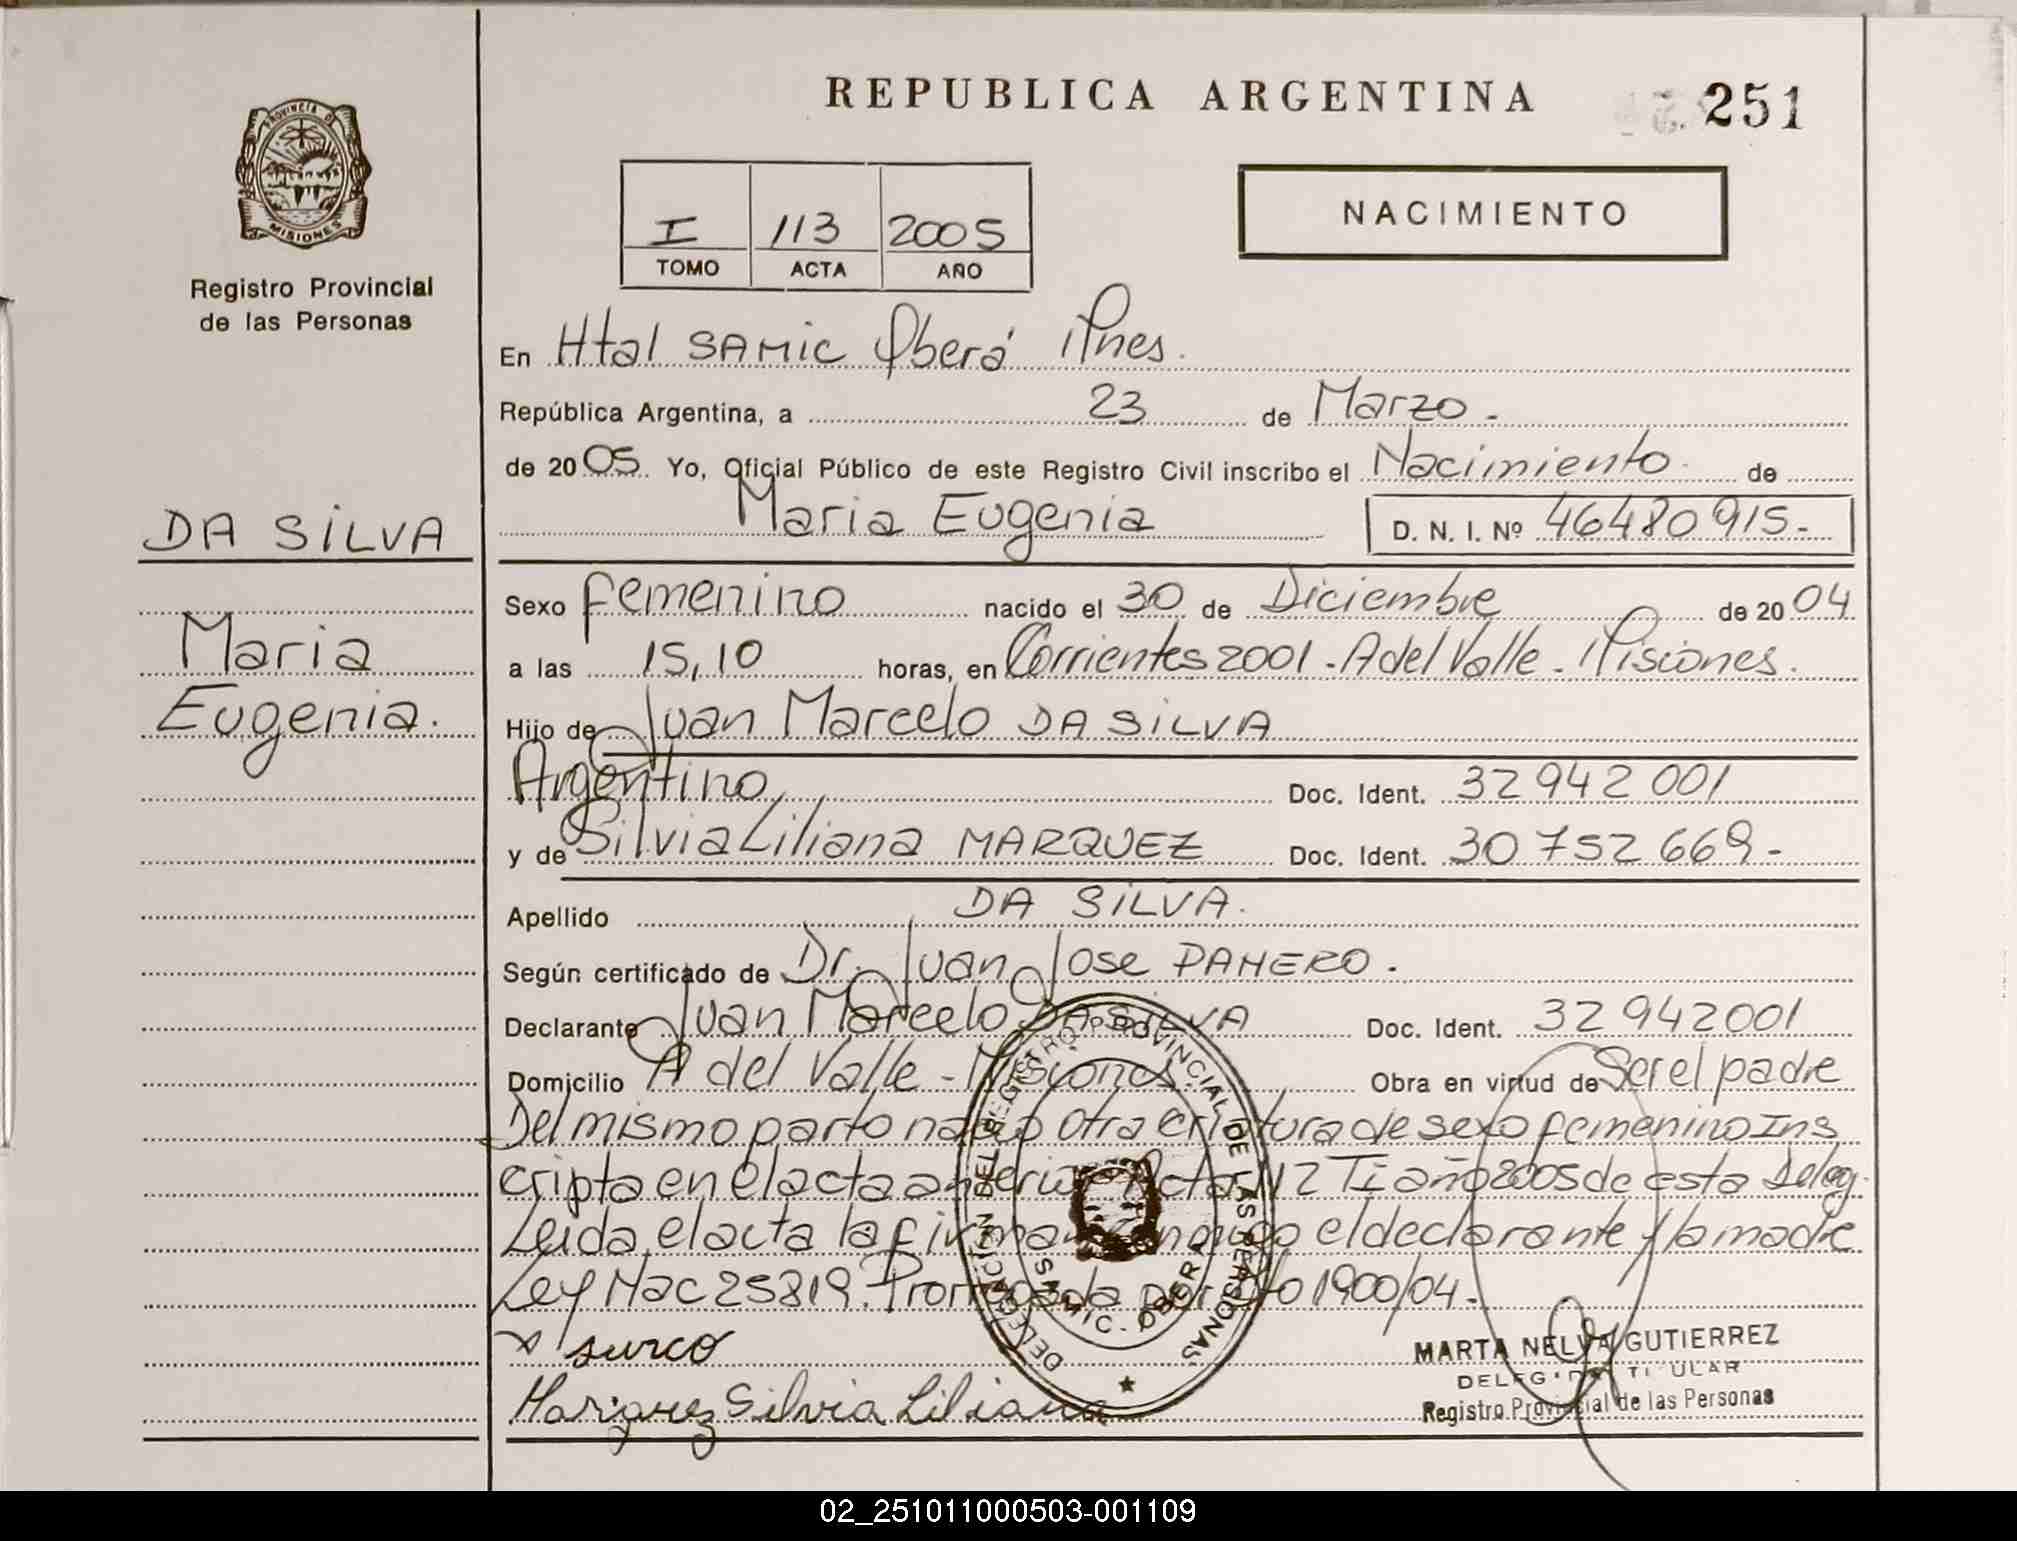 REPUBLICA ARGENTINA
251
PROVINCIA DE
MISIONES
Registro Provincial
de las Personas
I 113 2005
TOMO ACTA AÑO
NACIMIENTO
En Htal SAMIC Oberá Mnes.
República Argentina, a 23 de Marzo.
de 2005. Yo, Oficial Público de este Registro Civil inscribo el Nacimiento. de
Maria Eugenia D. N. I. Nº 46480915.-
DA SILVA
Maria
Eugenia.
Sexo femenino nacido el 30 de Diciembre de 2004
a las 15,10 horas, en Corrientes 2001 - A del Valle - Misiones.
Hijo de Juan Marcelo DA SILVA
Argentino Doc. Ident. 32942001
y de Silvia Liliana MARQUEZ Doc. Ident. 30752669-
Apellido DA SILVA.
Según certificado de Dr. Juan Jose PANERO.
Declarante Juan Marcelo DA SILVA Doc. Ident. 32942001
Domicilio A del Valle - Misiones. Obra en virtud de Ser el padre
Del mismo parto nacio otra criatura de sexo femenino Ins
cripta en el acta anterior Acta 112 TI año 2005 de esta Deleg.
Leida el acta la firman conmigo el declarante y la madre
Ley Nac 25819. Prorrogada por 1900/04.
surco
Marquez Silvia Liliana
DELEGACIÓN DEL REGISTRO PROVINCIAL DE LAS PERSONAS
SAMIC - OBERA
MARTA NELVA GUTIERREZ
DELEGADA TITULAR
Registro Provincial de las Personas
02_251011000503-001109